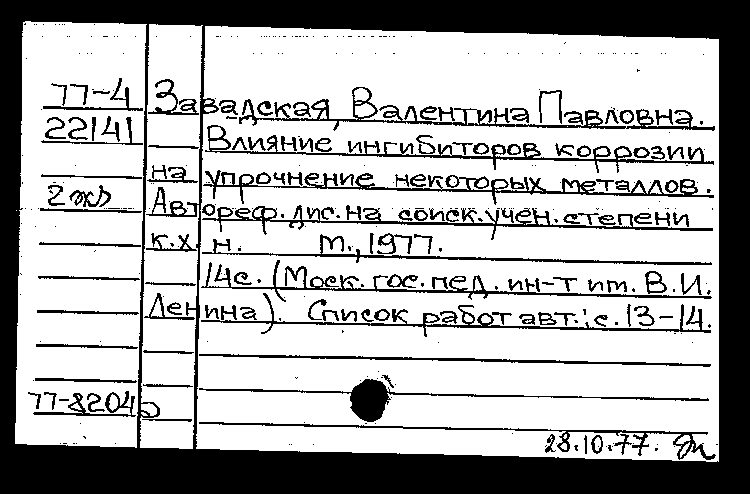 77-4 Завадская, Валентина Павловна.
22141 Влияние ингибиторов коррозии
на упрочнение некоторых металлов.
2 экз Автореф. дис. на соиск. учен. степени
к.х.н. М., 1977.
14с. (Моск. гос. пед. ин-т им. В.И.
Ленина). Список работ авт.: с. 13-14.
77-82045
28.10.77.